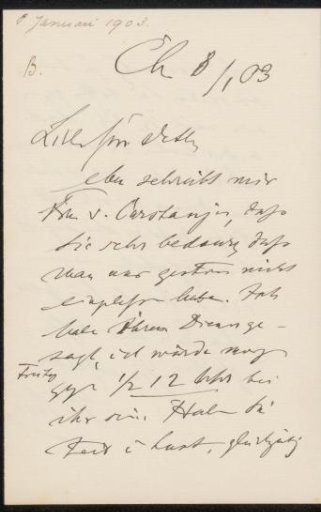 8 Januari 1903.
B.
Ch 8/1 03
Lieber
eben schreibt mir
Frau v. Carstanjen, dass
sie sehr bedaure, dass
man uns gestern nicht
haben. Ich
habe ihrem Diener ge-
sagt, ich würde morgen
Freitag
gegen 1/2 12 Uhr bei
ihr sein. Haben Sie
Zeit u Lust, gleichzeitig